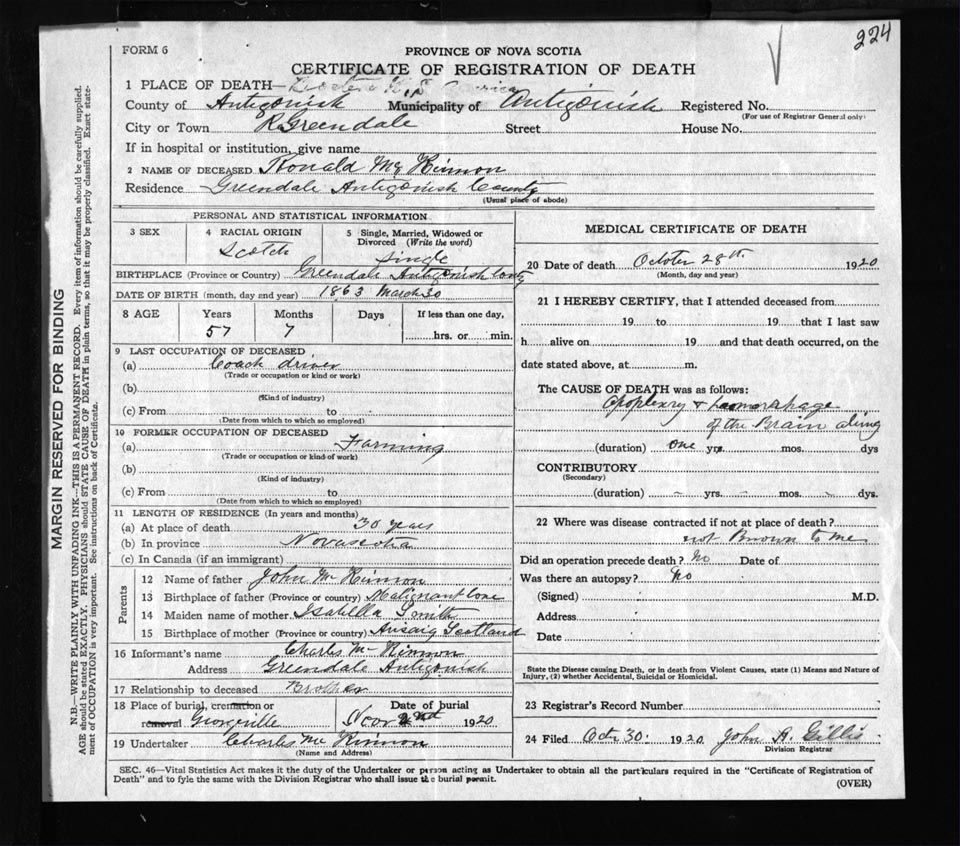 224
FORM 6
PROVINCE OF NOVA SCOTIA
CERTIFICATE OF REGISTRATION OF DEATH
1 PLACE OF DEATH—
County of Antigonish Municipality of Antigonish Registered No.
(For use of Registrar General only)
City or Town R Greendale Street House No.
If in hospital or institution, give name
2 NAME OF DECEASED Ronald Mc Kinnon
Residence Greendale Antigonish County
(Usual place of abode)
PERSONAL AND STATISTICAL INFORMATION
3 SEX
4 RACIAL ORIGIN
Scotch
5 Single, Married, Widowed or Divorced (Write the word)
Single
BIRTHPLACE (Province or Country) Greendale Antigonish County
DATE OF BIRTH (month, day and year) 1863 March 30
8 AGE Years Months Days If less than one day,
57 7 hrs. or min.
9 LAST OCCUPATION OF DECEASED
(a) Coach driver
(Trade or occupation or kind or work)
(b)
(Kind of industry)
(c) From to
(Date from which to which so employed)
10 FORMER OCCUPATION OF DECEASED
(a) Farming
(Trade or occupation or kind of work)
(b)
(Kind of industry)
(c) From to
(Date from which to which so employed)
11 LENGTH OF RESIDENCE (In years and months)
(a) At place of death 30 years
(b) In province Novascotia
(c) In Canada (if an immigrant)
Parents
12 Name of father John Mc Kinnon
13 Birthplace of father (Province or country) Malignant Cove
14 Maiden name of mother Isabella Smith
15 Birthplace of mother (Province or country) Arisaig Scotland
16 Informant's name Charles Mc Kinnon
Address Greendale Antigonish
17 Relationship to deceased Brother
18 Place of burial, cremation or removal Georgeville
Date of burial
Nov 2nd 1920
19 Undertaker Charles Mc Kinnon
(Name and Address)
MEDICAL CERTIFICATE OF DEATH
20 Date of death October 28th 1920
(Month, day and year)
21 I HEREBY CERTIFY, that I attended deceased from
19 to 19 that I last saw
h alive on 19 and that death occurred, on the
date stated above, at m.
The CAUSE OF DEATH was as follows:
Apoplexry & hemorrhage
of the Brain
(duration) one yrs. mos. dys
CONTRIBUTORY
(Secondary)
(duration) yrs. mos. dys.
22 Where was disease contracted if not at place of death?
not Known to me
Did an operation precede death? No Date of
Was there an autopsy? No
(Signed) M.D.
Address
Date
State the Disease causing Death, or in death from Violent Causes, state (1) Means and Nature of
Injury, (2) whether Accidental, Suicidal or Homicidal.
23 Registrar's Record Number
24 Filed Oct 30 1920 John A. Gillis
Division Registrar
SEC. 46—Vital Statistics Act makes it the duty of the Undertaker or person acting as Undertaker to obtain all the particulars required in the "Certificate of Registration of
Death" and to fyle the same with the Division Registrar who shall issue the burial permit.
(OVER)
MARGIN RESERVED FOR BINDING
N.B.—WRITE PLAINLY WITH UNFADING INK—THIS IS A PERMANENT RECORD. Every item of information should be carefully supplied.
AGE should be stated EXACTLY. PHYSICIANS should STATE CAUSE OF DEATH in plain terms, so that it may be properly classified. Exact state-
ment of OCCUPATION is very important. See instructions on back of Certificate.